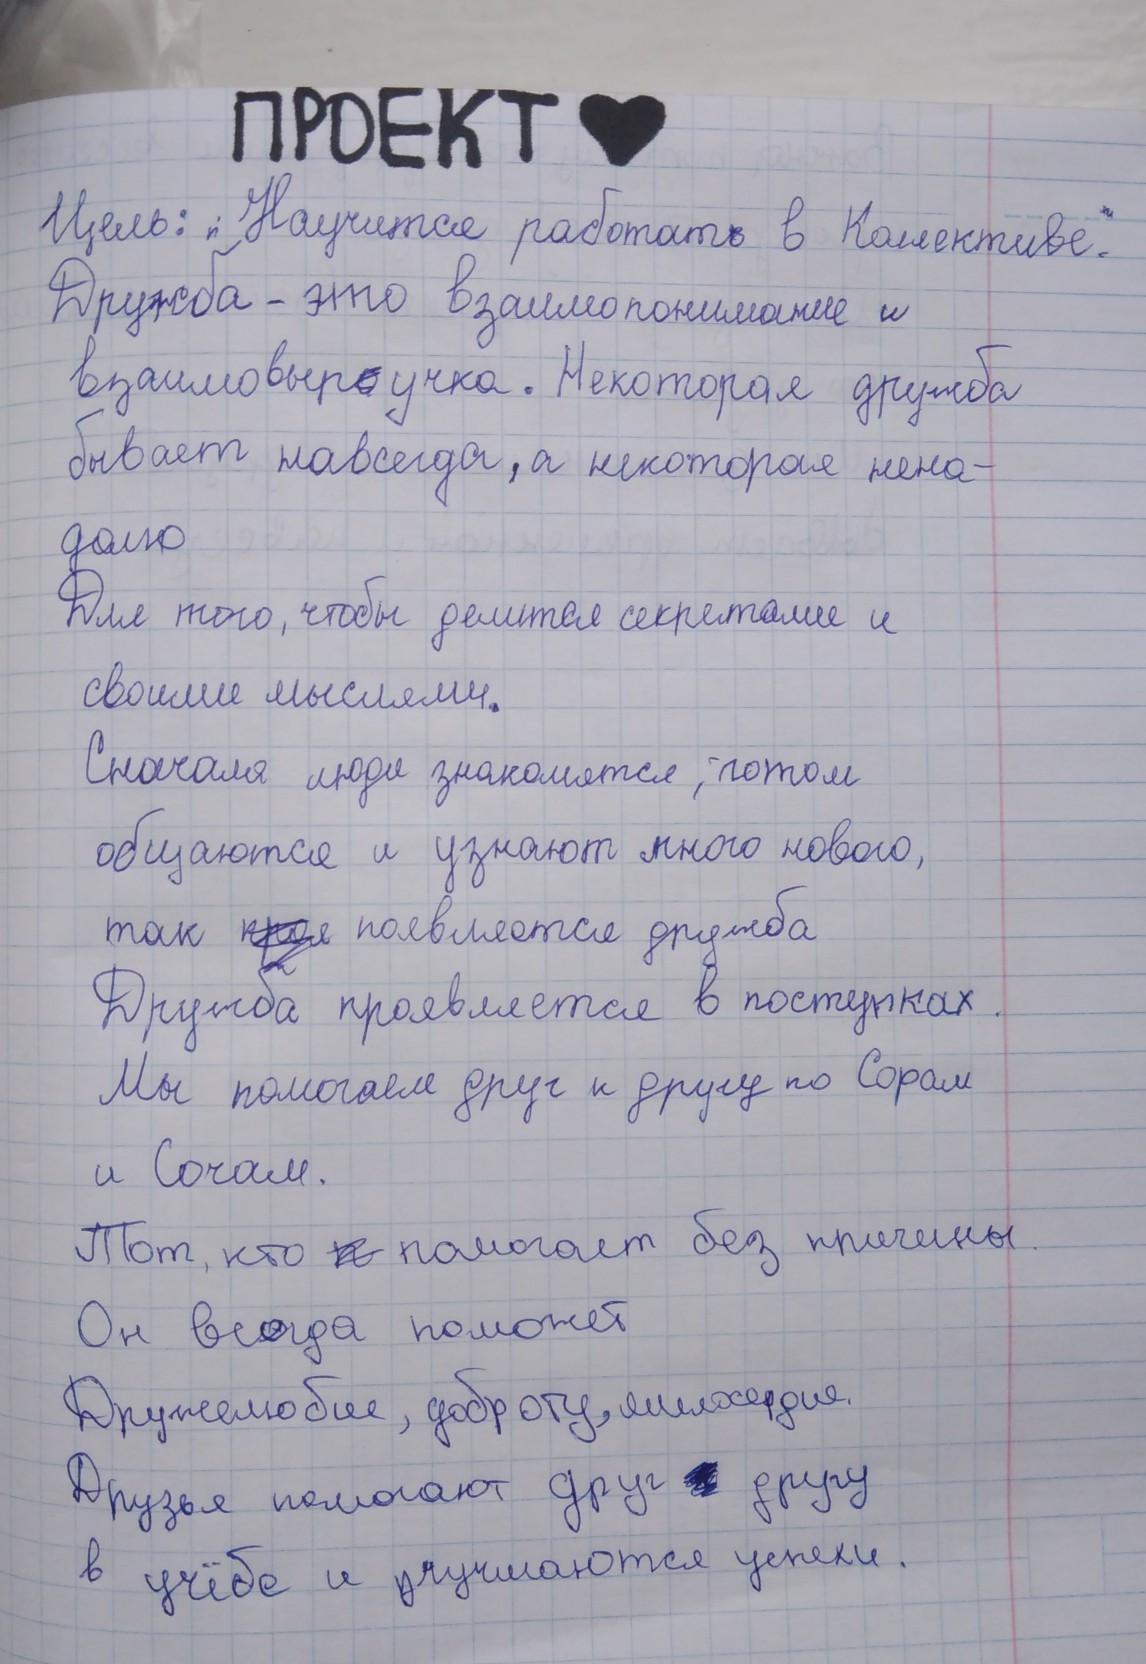 ПРОЕКТ
Цель: "Научится работать в Коллективе."
Дружба - это взаимопонимание и
взаимовыручка. Некоторая дружба
бывает навсегда, а некоторая нена-
долго
Для того, чтобы делится секретами и
своими мыслями.
Сначаля люди знакомятся, потом
общаются и узнают много нового,
так появляется дружба
Дружба проявляется в поступках.
Мы помогаем друг к другу по Сорам
и Сочам.
Тот, кто помогает без причины.
Он всегда поможет
Дружелюбие, доброту,
Друзья помогают друг другу
в учёбе и улучшаются успехи.